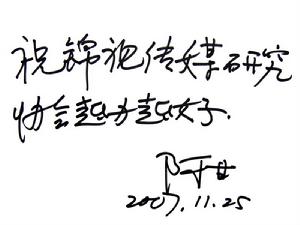 祝锦瑟传媒研究
协会越办越好.
2007.11.25